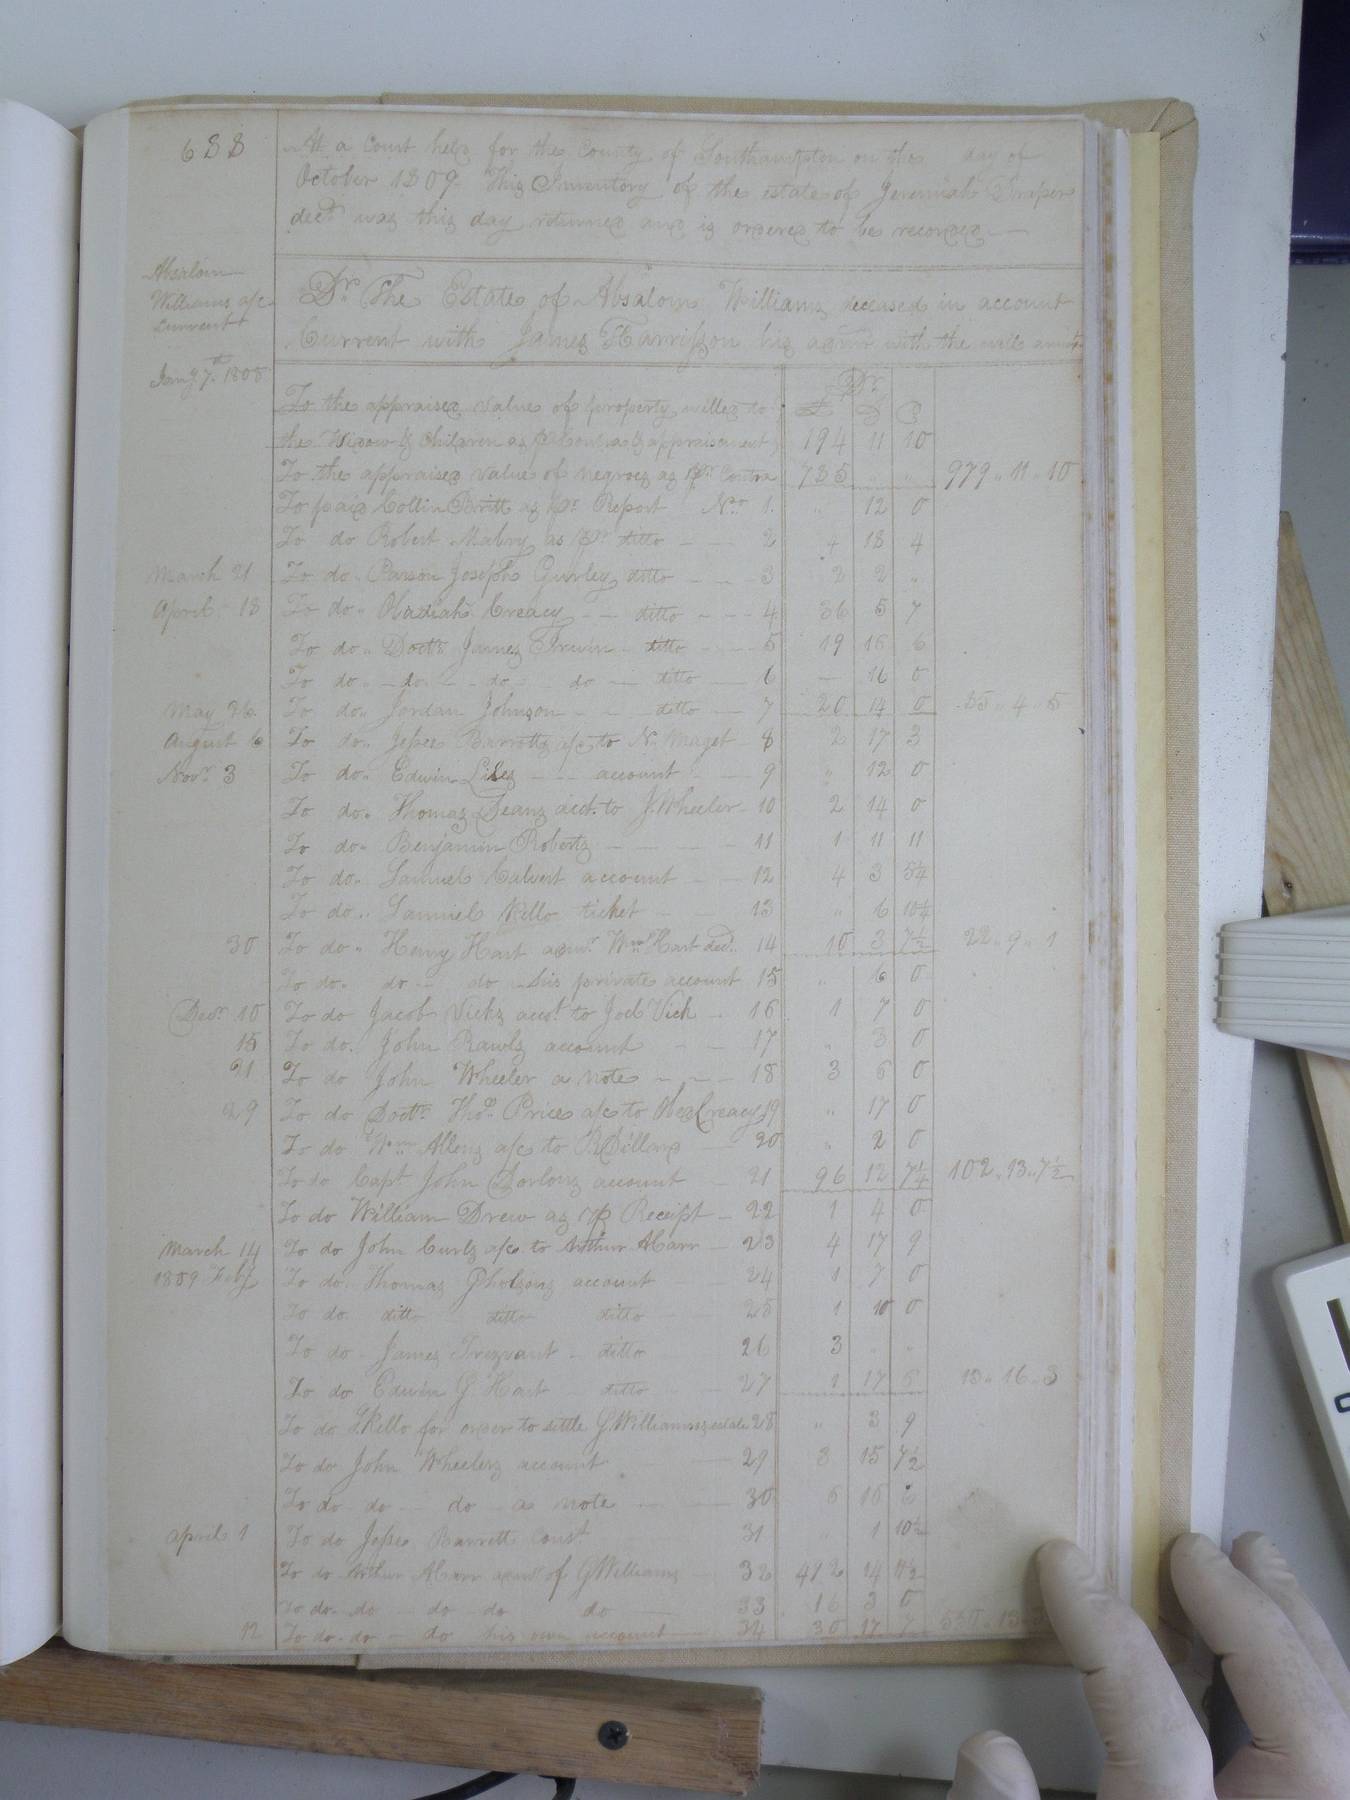 688
At a Court held for the County of Southampton on the day of
October 1809. This Inventory of the estate of Jeremiah Draper
decd was this day returned and is ordered to be recorded
Absalom
Williams a/c
Current
Dr The Estate of Absalom Williams deceased in account
Current with James Harrisson his admr with the will annxd
Jany 7th 1808
Dr
£ S
To the appraised value of property willed to
the Widow & Children as appraisement 194 11 10
To the appraised value of negroes as pr Contra 785 " " 979 " 11 " 10
To paid Collin Britt as pr Report No 1. " 12 0
To do Robert Mabry as pr ditto 2 4 18 4
March 21 To do. Parson Joseph Gurley ditto 3 2 2 "
April 18 To do " Obadiah Creacy ditto 4 36 5 7
To do " Doctr James Irwin ditto 5 19 16 6
To do " do do do ditto 6 16 0
May 26 To do " Jordan Johnson ditto 7 20 14 0
August 6 To do " Jesse Barretts a/c to N. Maget 8 2 17 3
Novr 3 To do " Edwin Liles account 9 " 12 0
To do " Thomas Deans acct. to J. Wheeler 10 2 14 0
To do " Benjamin Roberts 11 1 11 11
To do. Samuel Calvert account 12 4 3 5¼
To do " Samuel Kello ticket 13 " 6 10¼
30 To do " Henry Hart admr Wm Hart decd. 14 10 3 7½ 22 " 9 " 1
To do " do do his private account 15 " 6 0
Decr 10 To do Jacob Vicks acct to Joel Vick 16 1 7 0
15 To do. John Rawls account 17 " 3 0
21 To do John Wheeler a note 18 3 6 0
29 To do Doctr Thos. Price a/c to Obed Creacy 19 " 17 0
To do Wm Allens a/c to R Dillard 20 " 2 0
To do Capt John Dorlons account 21 96 12 7¼ 102 " 13 " 7½
To do William Drew as pr Receipt 22 1 4 0
March 14 To do John Curls a/c to Arthur Harr 23 4 17 9
1809 Feby To do. Thomas Gholsons account 24 1 7 0
To do ditto ditto ditto 25 1 10 0
To do James Trezvant ditto 26 3 " "
To do Edwin G Hart ditto 27 1 17 6
To do S Kello for order to settle G Williams's estate 28 " 3 9
To do John Wheelers account 29 3 15 7½
To do do do a note 30 6 16
April 1 To do Jesse Barrett Const. 31 " 1 10½
To do Arthur Harr admr of G Williams 32 492 14 11½
To do do do do do 33 16 3 0
12 To do do do his own account 34 30 17 7